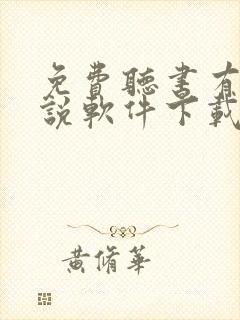 免費聽書有
說軟件下載
黃脩華